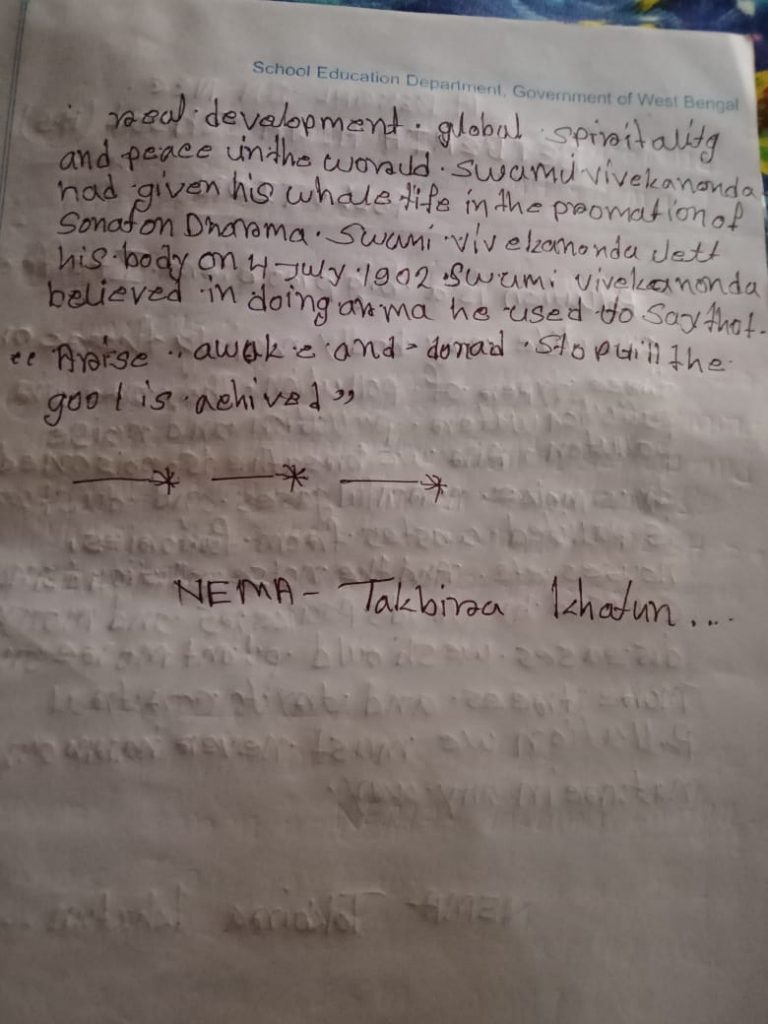 School Education Department, Government of West Bengal
real development. global spiritality
and peace in the world. swami vivekanonda
had given his whale life in the promation of
Sonaton Dharama. swami vivekanonda left
his body on 4 July 1902. swami vivekanonda
believed in doing arma he used to say that.
"Arise awake and donad stop till the
goal is achived"
NEMA- Takbiraa Khatun....